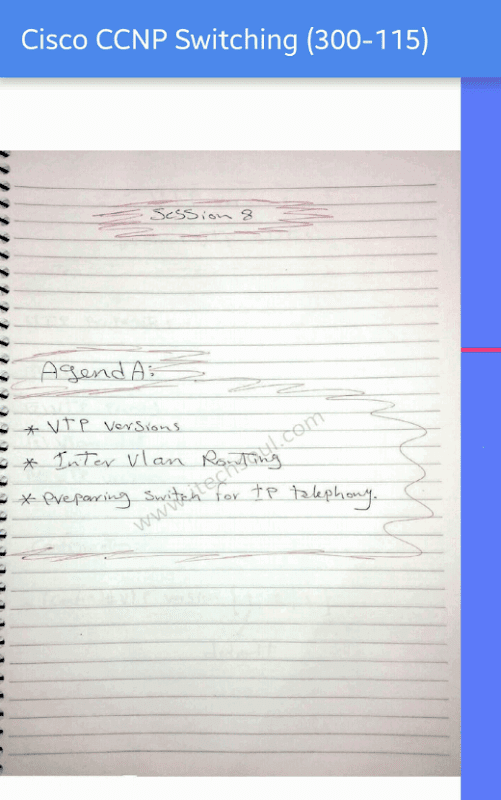 Cisco CCNP Switching (300-115)
Session 8
AgendA:
* VTP versions
* Inter Vlan Routing
* Preparing Switch for IP telephony.
www.itechsoul.com